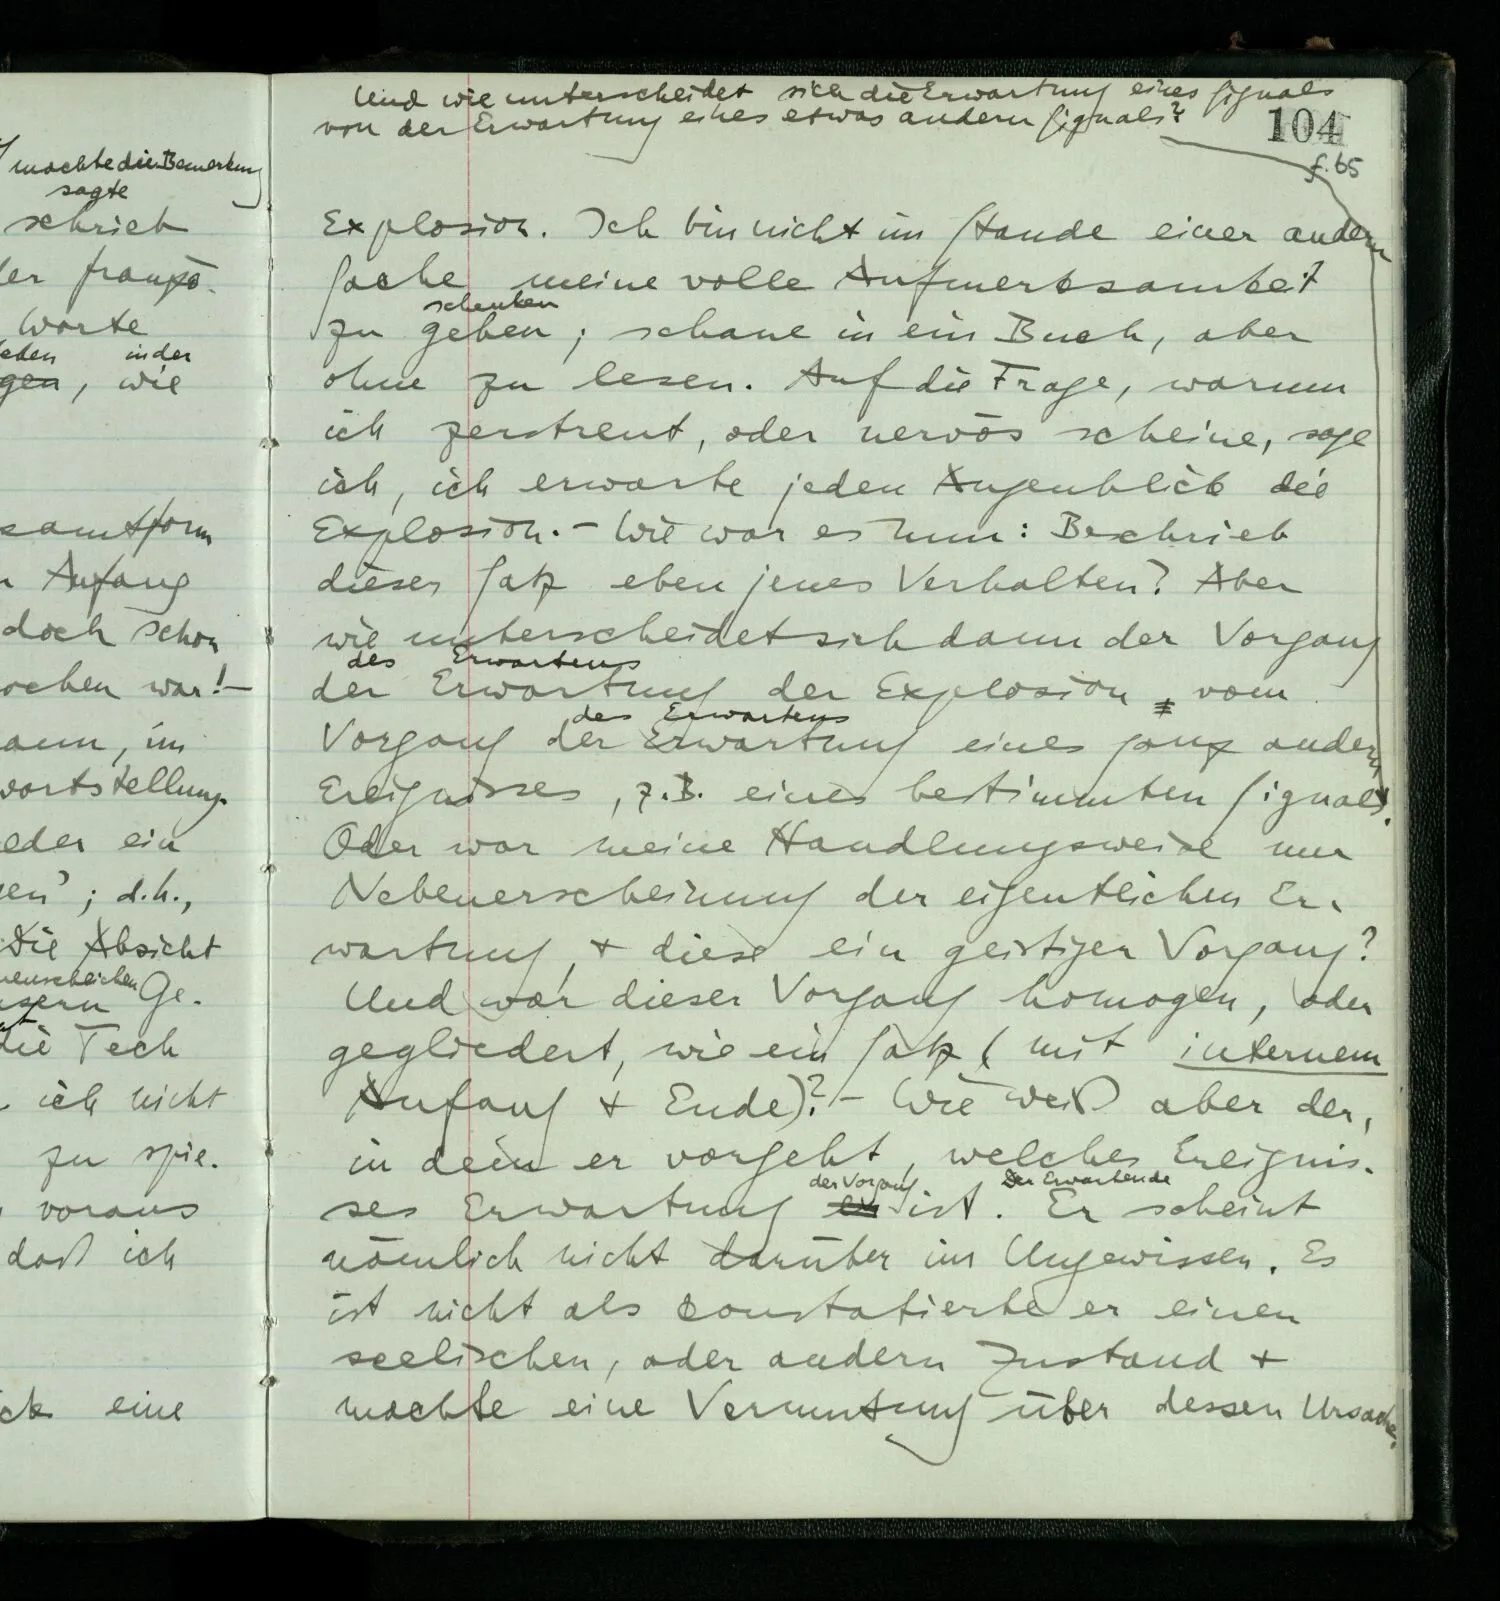 machte die Bemerkung
sagte
schrieb
der französ-
Worte
in der
gen, wie
samtform
Anfang
doch schon
ochen war! –
ann, im
wortstellung.
eder ein
gen'; d.h.,
Die Absicht
menschlichen
Ge-
die Tech
ich nicht
zu spie-
voraus
daß ich
ck eine
Und wie unterscheidet sich die Erwartung eines Signals
von der Erwartung eines etwas andern Signals?
104
f. 65
Explosion. Ich bin nicht im Stande einer andern
Sache meine volle Aufmerksamkeit
schenken
zu geben; schaue in ein Buch, aber
ohne zu lesen. Auf die Frage, warum
ich zerstreut, oder nervös scheine, sage
ich, ich erwarte jeden Augenblick die
Explosion. – Wie war es nun: Beschrieb
dieser Satz eben jenes Verhalten? Aber
wie unterscheidet sich dann der Vorgang
des Erwartens
der Erwartung der Explosion vom
des Erwartens
Vorgang der Erwartung eines ganz andern
Ereignisses, z.B. eines bestimmten Signals.
Oder war meine Handlungsweise nur
Nebenerscheinung der eigentlichen Er-
wartung, + diese ein geistiger Vorgang?
Und war dieser Vorgang homogen, oder
gegliedert, wie ein Satz (mit internem
Anfang + Ende)? – Wie weiß aber der,
in dem er vorgeht, welches Ereignis-
der Vorgang Der Erwartende
ses Erwartung er ist. Er scheint
nämlich nicht darüber im Ungewissen. Es
ist nicht als constatierte er einen
seelischen, oder andern Zustand +
machte eine Vermutung über dessen Ursache.